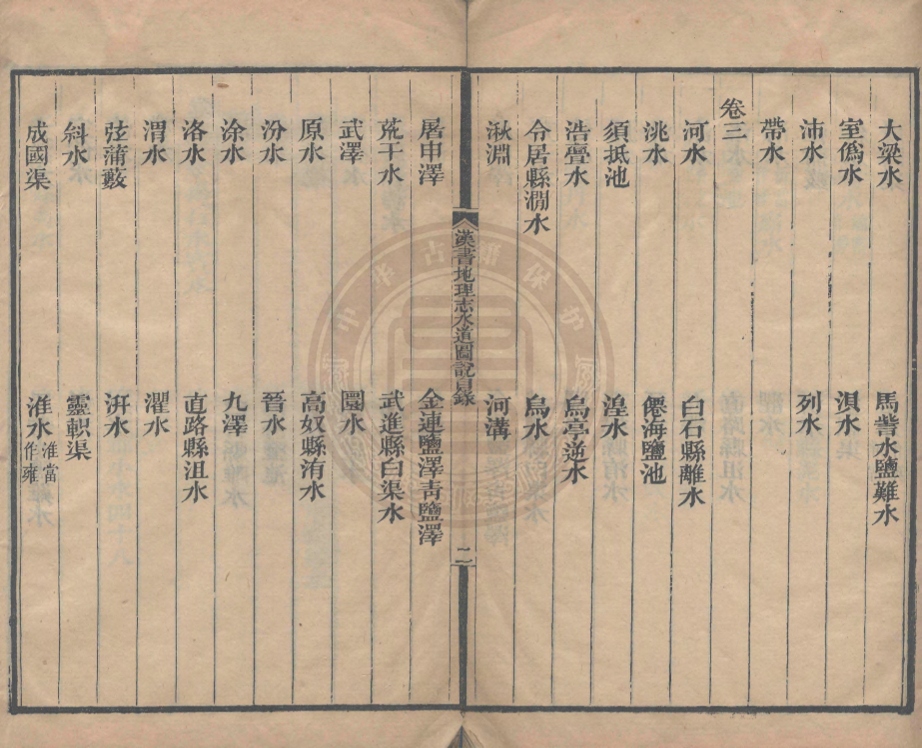 大梁水　馬訾水鹽難水
室僞水　浿水
沛水　列水
帶水
卷三
河水　白石縣離水
洮水　僊海鹽池
須抵池　湟水
浩亹水　烏亭逆水
令居縣澗水　烏水
湫淵　河溝
漢書地理志水道圖說目錄　二
屠申澤　金連鹽澤青鹽澤
荒干水　武進縣白渠水
武澤　圁水
原水　高奴縣洧水
汾水　晉水
涂水　九澤
洛水　直路縣沮水
渭水　濯水
弦蒲藪　汧水
斜水　靈軹渠
成國渠　淮水淮當作雍
中华古籍保护